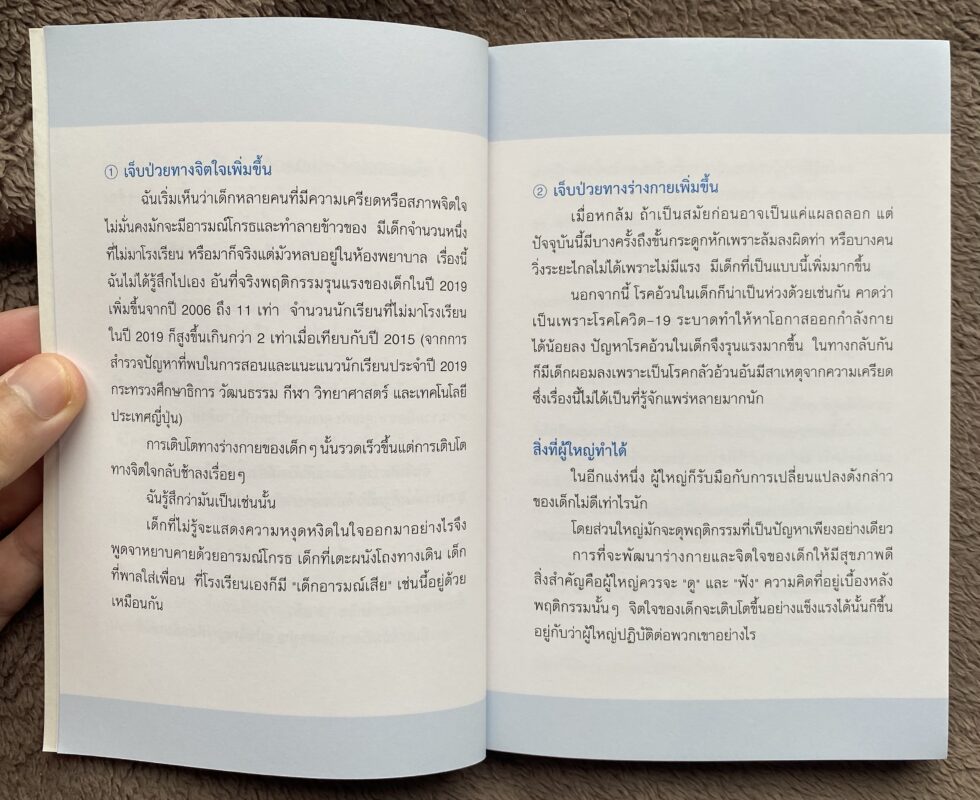 ① เจ็บป่วยทางจิตใจเพิ่มขึ้น
ฉันเริ่มเห็นว่าเด็กหลายคนที่มีความเครียดหรือสภาพจิตใจ
ไม่มั่นคงมักจะมีอารมณ์โกรธและทำลายข้าวของ มีเด็กจำนวนหนึ่ง
ที่ไม่มาโรงเรียน หรือมาก็จริงแต่มัวหลบอยู่ในห้องพยาบาล เรื่องนี้
ฉันไม่ได้รู้สึกไปเอง อันที่จริงพฤติกรรมรุนแรงของเด็กในปี 2019
เพิ่มขึ้นจากปี 2006 ถึง 11 เท่า จำนวนนักเรียนที่ไม่มาโรงเรียน
ในปี 2019 ก็สูงขึ้นเกินกว่า 2 เท่าเมื่อเทียบกับปี 2015 (จากการ
สำรวจปัญหาที่พบในการสอนและแนะแนวนักเรียนประจำปี 2019
กระทรวงศึกษาธิการ วัฒนธรรม กีฬา วิทยาศาสตร์ และเทคโนโลยี
ประเทศญี่ปุ่น)
การเติบโตทางร่างกายของเด็กๆ นั้นรวดเร็วขึ้นแต่การเติบโต
ทางจิตใจกลับช้าลงเรื่อยๆ
ฉันรู้สึกว่ามันเป็นเช่นนั้น
เด็กที่ไม่รู้จะแสดงความหงุดหงิดในใจออกมาอย่างไรจึง
พูดจาหยาบคายด้วยอารมณ์โกรธ เด็กที่เตะผนังโถงทางเดิน เด็ก
ที่พาลใส่เพื่อน ที่โรงเรียนเองก็มี "เด็กอารมณ์เสีย" เช่นนี้อยู่ด้วย
เหมือนกัน
② เจ็บป่วยทางร่างกายเพิ่มขึ้น
เมื่อหกล้ม ถ้าเป็นสมัยก่อนอาจเป็นแค่แผลถลอก แต่
ปัจจุบันนี้มีบางครั้งถึงขั้นกระดูกหักเพราะล้มลงผิดท่า หรือบางคน
วิ่งระยะไกลไม่ได้เพราะไม่มีแรง มีเด็กที่เป็นแบบนี้เพิ่มมากขึ้น
นอกจากนี้ โรคอ้วนในเด็กก็น่าเป็นห่วงด้วยเช่นกัน คาดว่า
เป็นเพราะโรคโควิด-19 ระบาดทำให้หาโอกาสออกกำลังกาย
ได้น้อยลง ปัญหาโรคอ้วนในเด็กจึงรุนแรงมากขึ้น ในทางกลับกัน
ก็มีเด็กผอมลงเพราะเป็นโรคกลัวอ้วนอันมีสาเหตุจากความเครียด
ซึ่งเรื่องนี้ไม่ได้เป็นที่รู้จักแพร่หลายมากนัก
สิ่งที่ผู้ใหญ่ทำได้
ในอีกแง่หนึ่ง ผู้ใหญ่ก็รับมือกับการเปลี่ยนแปลงดังกล่าว
ของเด็กไม่ดีเท่าไรนัก
โดยส่วนใหญ่มักจะดุพฤติกรรมที่เป็นปัญหาเพียงอย่างเดียว
การที่จะพัฒนาร่างกายและจิตใจของเด็กให้มีสุขภาพดี
สิ่งสำคัญคือผู้ใหญ่ควรจะ "ดู" และ "ฟัง" ความคิดที่อยู่เบื้องหลัง
พฤติกรรมนั้นๆ จิตใจของเด็กจะเติบโตขึ้นอย่างแข็งแรงได้นั้นก็ขึ้น
อยู่กับว่าผู้ใหญ่ปฏิบัติต่อพวกเขาอย่างไร